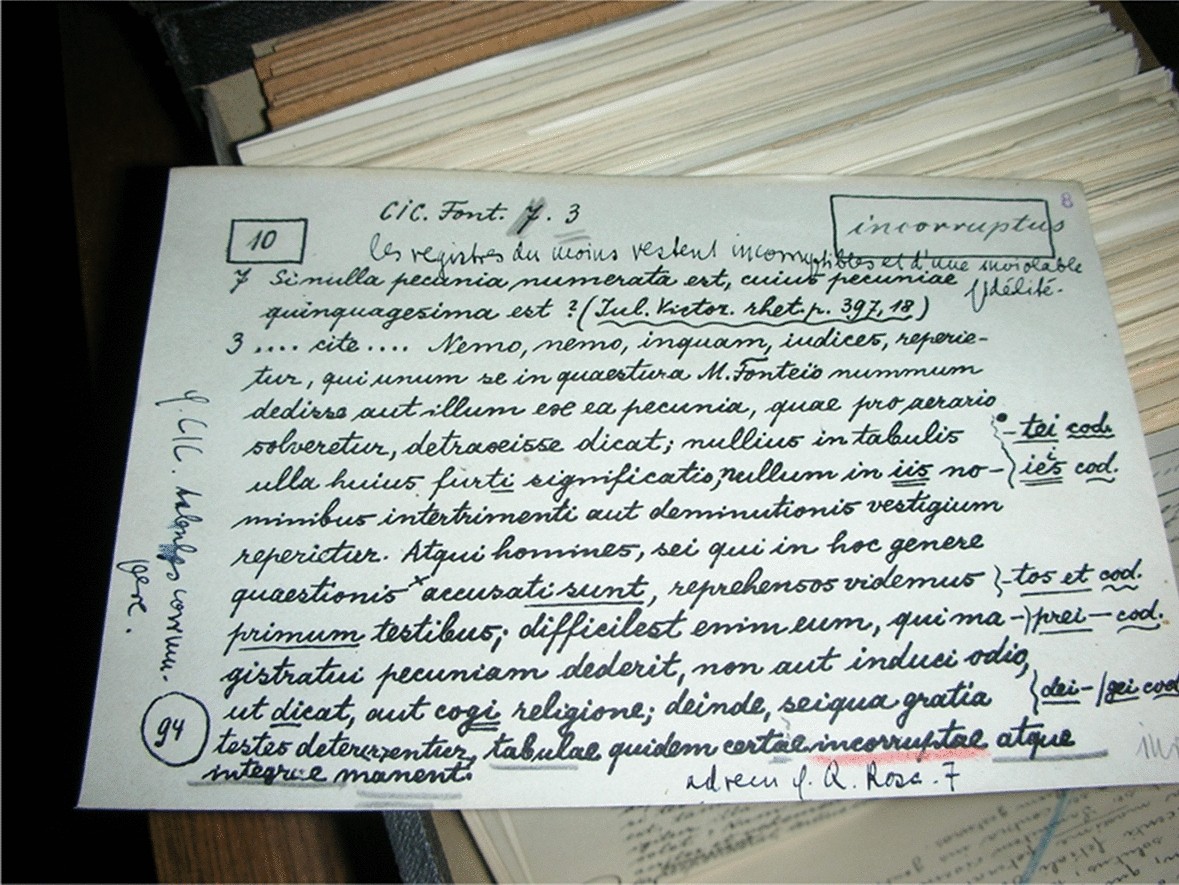 8
CIC. Font. 7. 3
incorruptus
10
les registres du moins restent incorruptibles et d'une inviolable
fidélité.
7 Si nulla pecunia numerata est, cuius pecuniae
quinquagesima est? (Iul. Victor. rhet. p. 397, 18)
3 .... cite .... Nemo, nemo, inquam, iudices, reperie-
tur, qui unum se in quaestura M. Fonteio nummum
dedisse aut illum ex ea pecunia, quae pro aerario
solveretur, detraxisse dicat; nullius in tabulis
-tei cod.
ulla huius furti significatio, nullum in iis no-
ieis cod.
minibus intertrimenti aut deminutionis vestigium
reperietur. Atqui homines, sei qui in hoc genere
quaestionis x accusati sunt, reprehensos videmus
-tos et cod.
primum testibus; difficilest enim eum, qui ma-
prei- cod.
gistratui pecuniam dederit, non aut induci odio,
ut dicat, aut cogi religione; deinde, seiqua gratia
dei-/gei cod
testes deterrentur, tabulae quidem certae incorruptae atque
integrae manent.
ad rem cf. Q. Rosc. 7
cf. CIC.
94